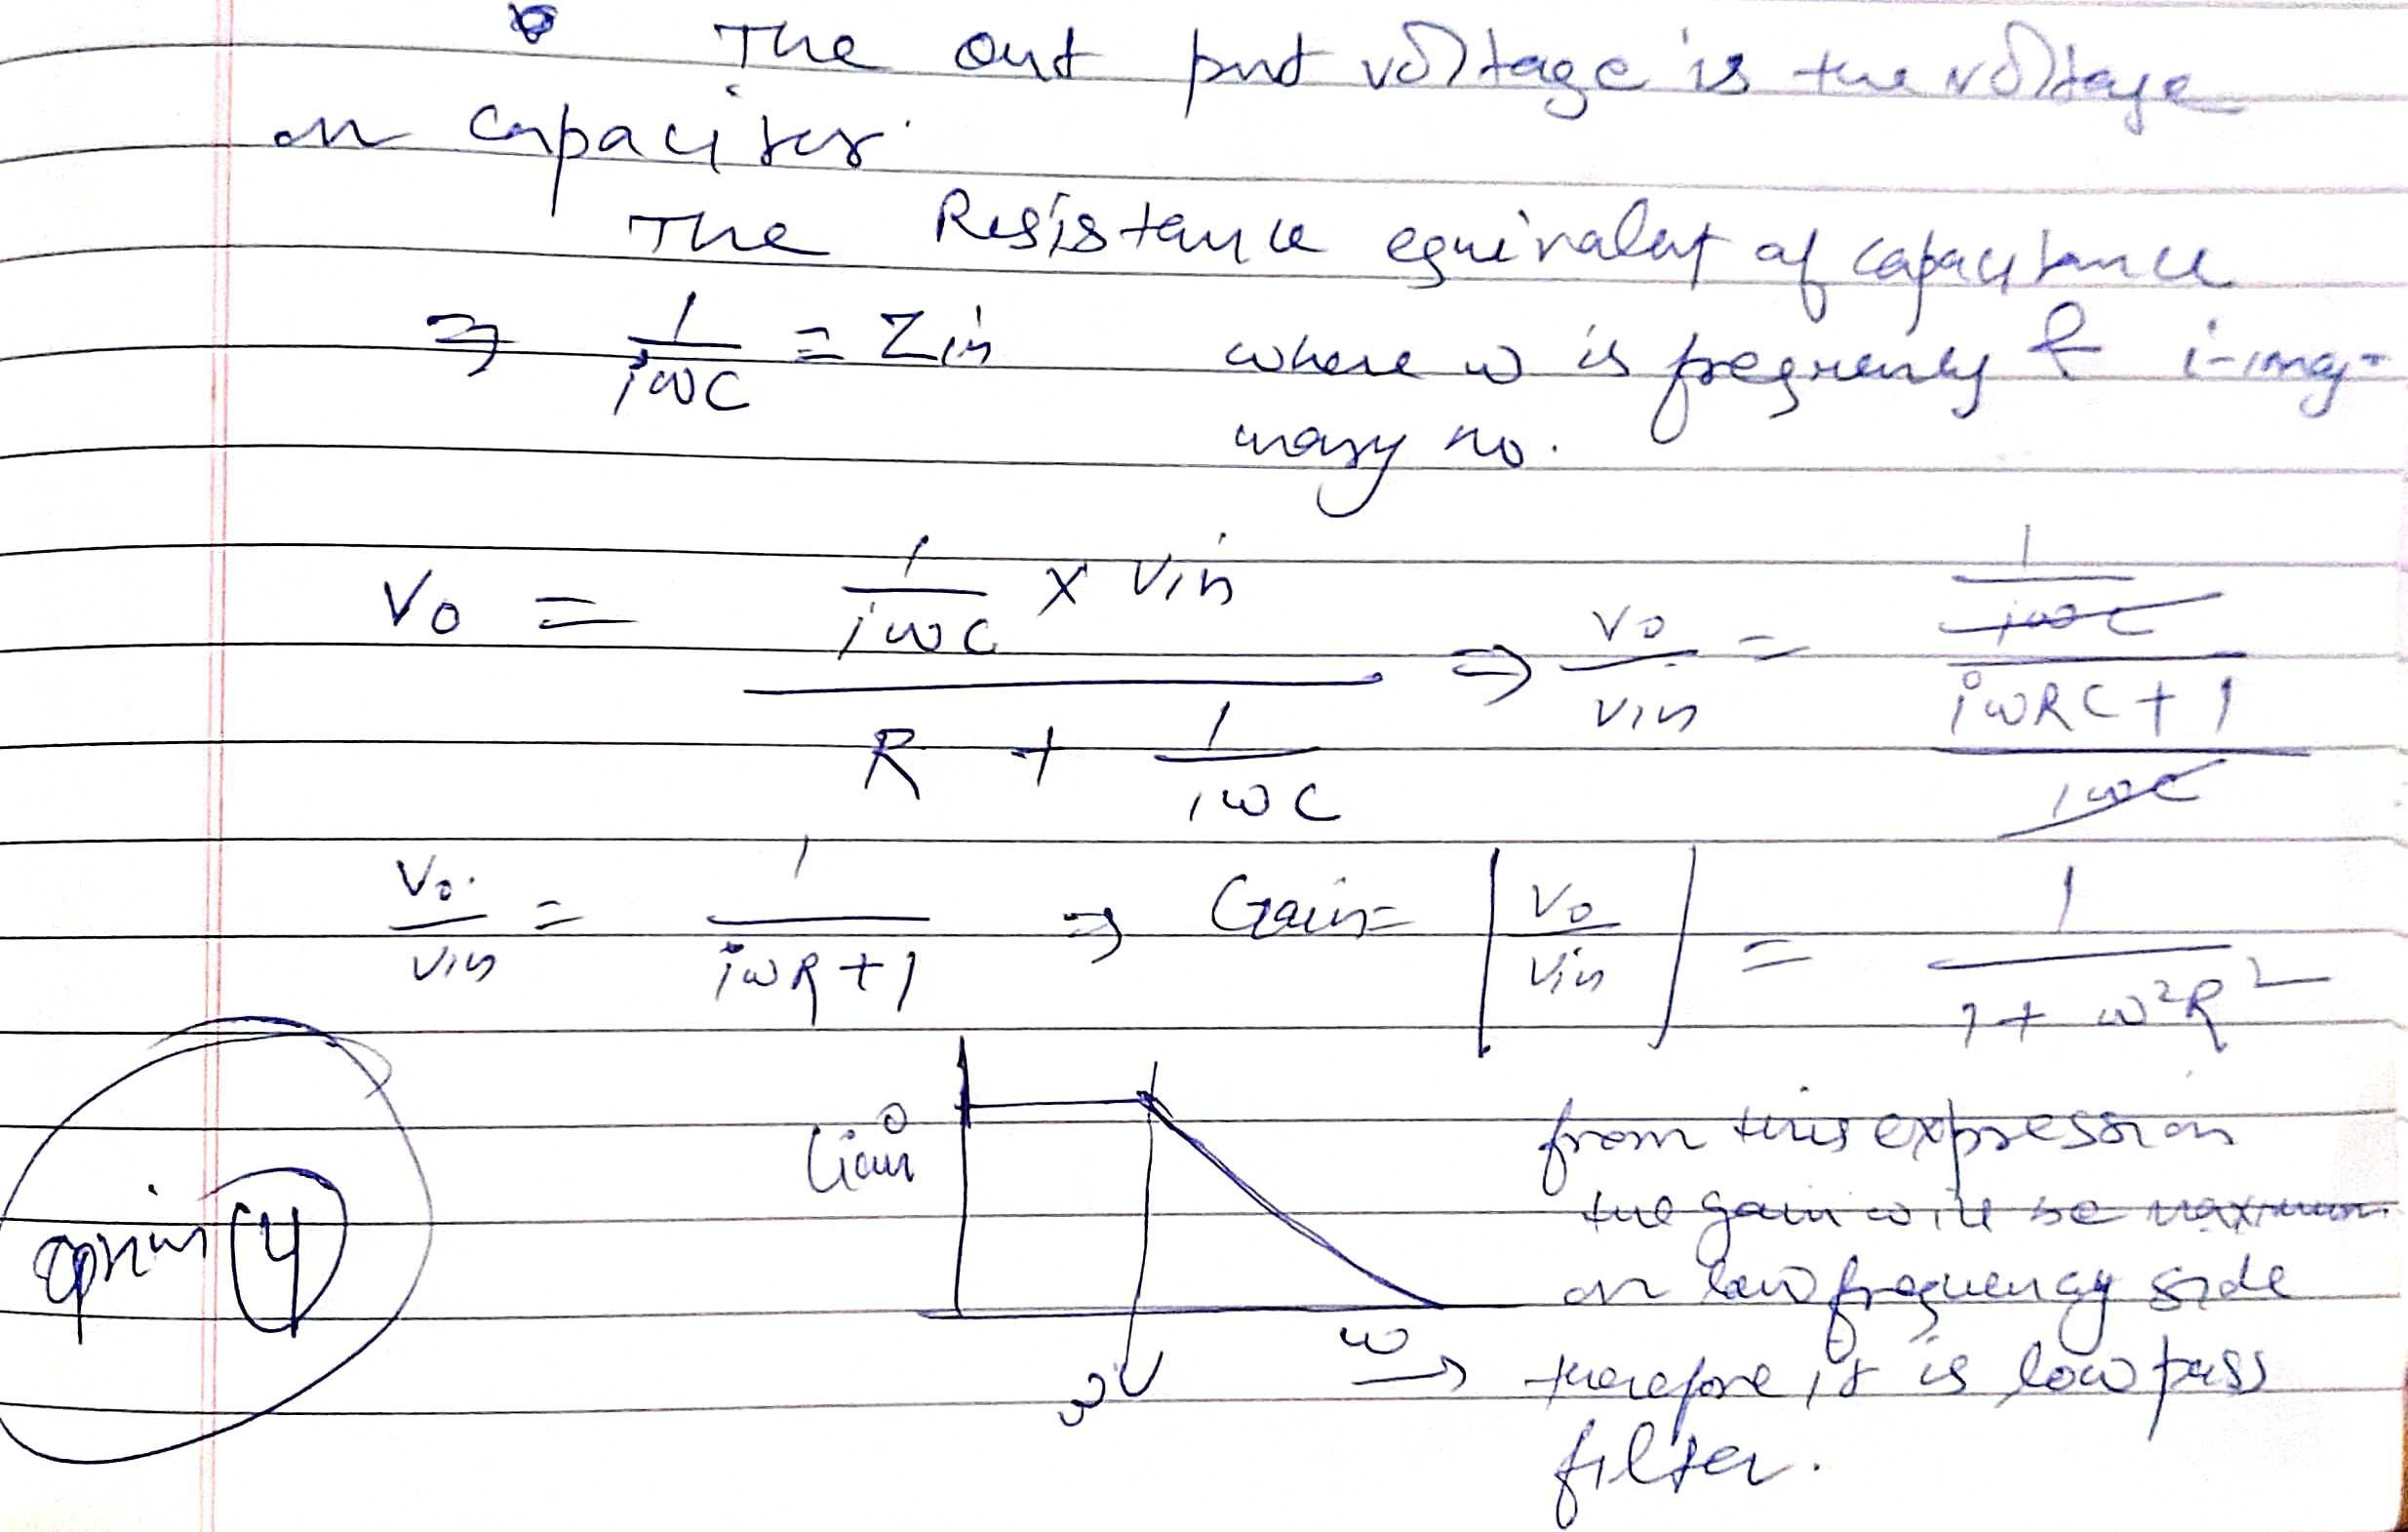 The out put voltage is the voltage
on capacitor.
The Resistance equivalent of capacitance
⇒ 1/iωC = Zin where ω is frequency & i-imag-
inary no.
Vo = (1/iωC × Vin) / (R + 1/iωC) ⇒ Vo/Vin = (1/iωC) / ((iωRC + 1)/iωC)
Vo/Vin = 1/(iωR + 1) ⇒ Gain = |Vo/Vin| = 1/(1 + ω²R²)
0
Gain
ω →
from this expression
the gain will be maximum
on low frequency side
therefore it is low pass
filter.
option 4